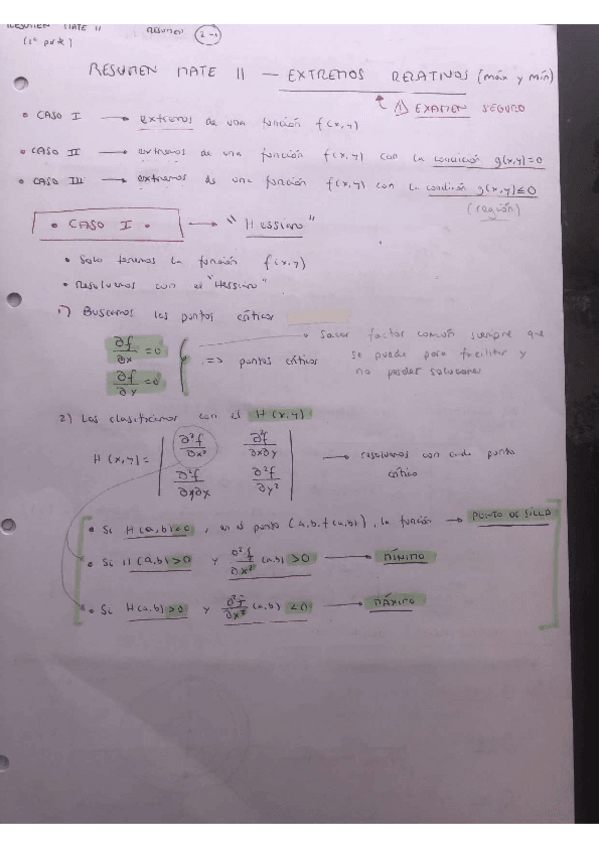 RESUMEN MATE II RESUMEN
(1ª parte)
RESUMEN MATE II — EXTREMOS RELATIVOS (máx y mín)
⚠ EXAMEN SEGURO
• CASO I → extremos de una función f(x,y)
• CASO II → extremos de una función f(x,y) con la condición g(x,y)=0
• CASO III → extremos de una función f(x,y) con la condición g(x,y)≤0
(región)
• CASO I • → "Hessiano"
• Solo tenemos la función f(x,y)
• Resolvemos con el "Hessiano"
1) Buscamos los puntos críticos
∂f/∂x =0
∂f/∂y =0
=> puntos críticos
→ Sacar factor común siempre que
se pueda para facilitar y
no perder soluciones
2) Los clasificamos con el H(x,y)
H(x,y)= | ∂²f/∂x² ∂²f/∂x∂y |
| ∂²f/∂y∂x ∂²f/∂y² |
→ resolvemos con cada punto
crítico
• Si H(a,b)<0, en el punto (a,b,f(a,b)), la función → PUNTO DE SILLA
• Si H(a,b)>0 y ∂²f/∂x² (a,b) >0 → MÍNIMO
• Si H(a,b)>0 y ∂²f/∂x² (a,b) <0 → MÁXIMO